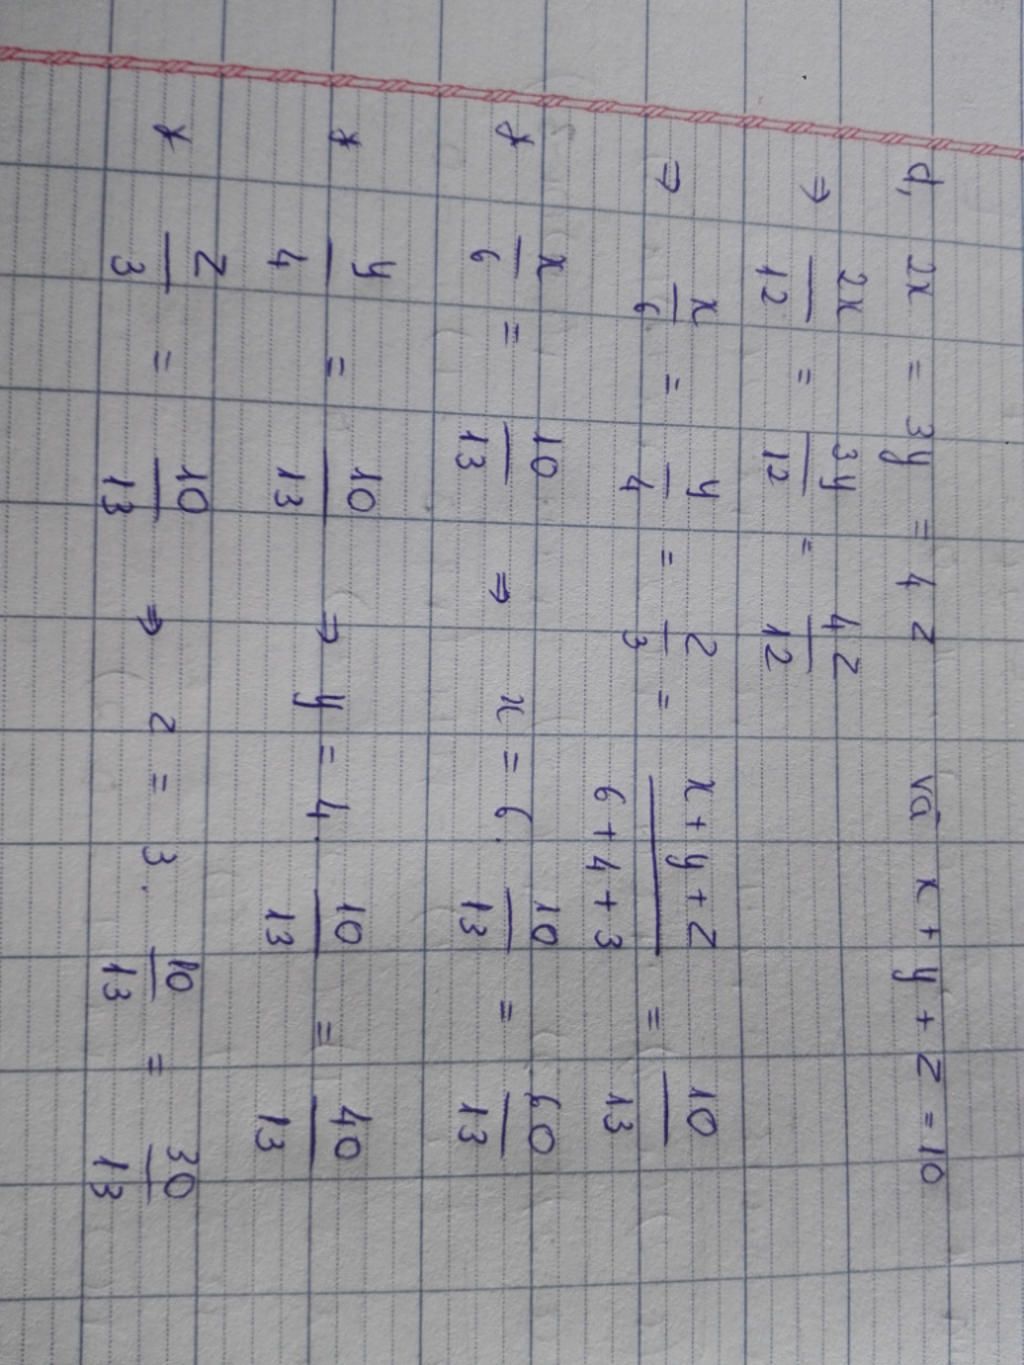 d, 2x = 3y = 4z và x + y + z = 10
⇒ 2x/12 = 3y/12 = 4z/12
⇒ x/6 = y/4 = z/3 = (x + y + z)/(6 + 4 + 3) = 10/13
* x/6 = 10/13 ⇒ x = 6 . 10/13 = 60/13
* y/4 = 10/13 ⇒ y = 4 . 10/13 = 40/13
* z/3 = 10/13 ⇒ z = 3 . 10/13 = 30/13